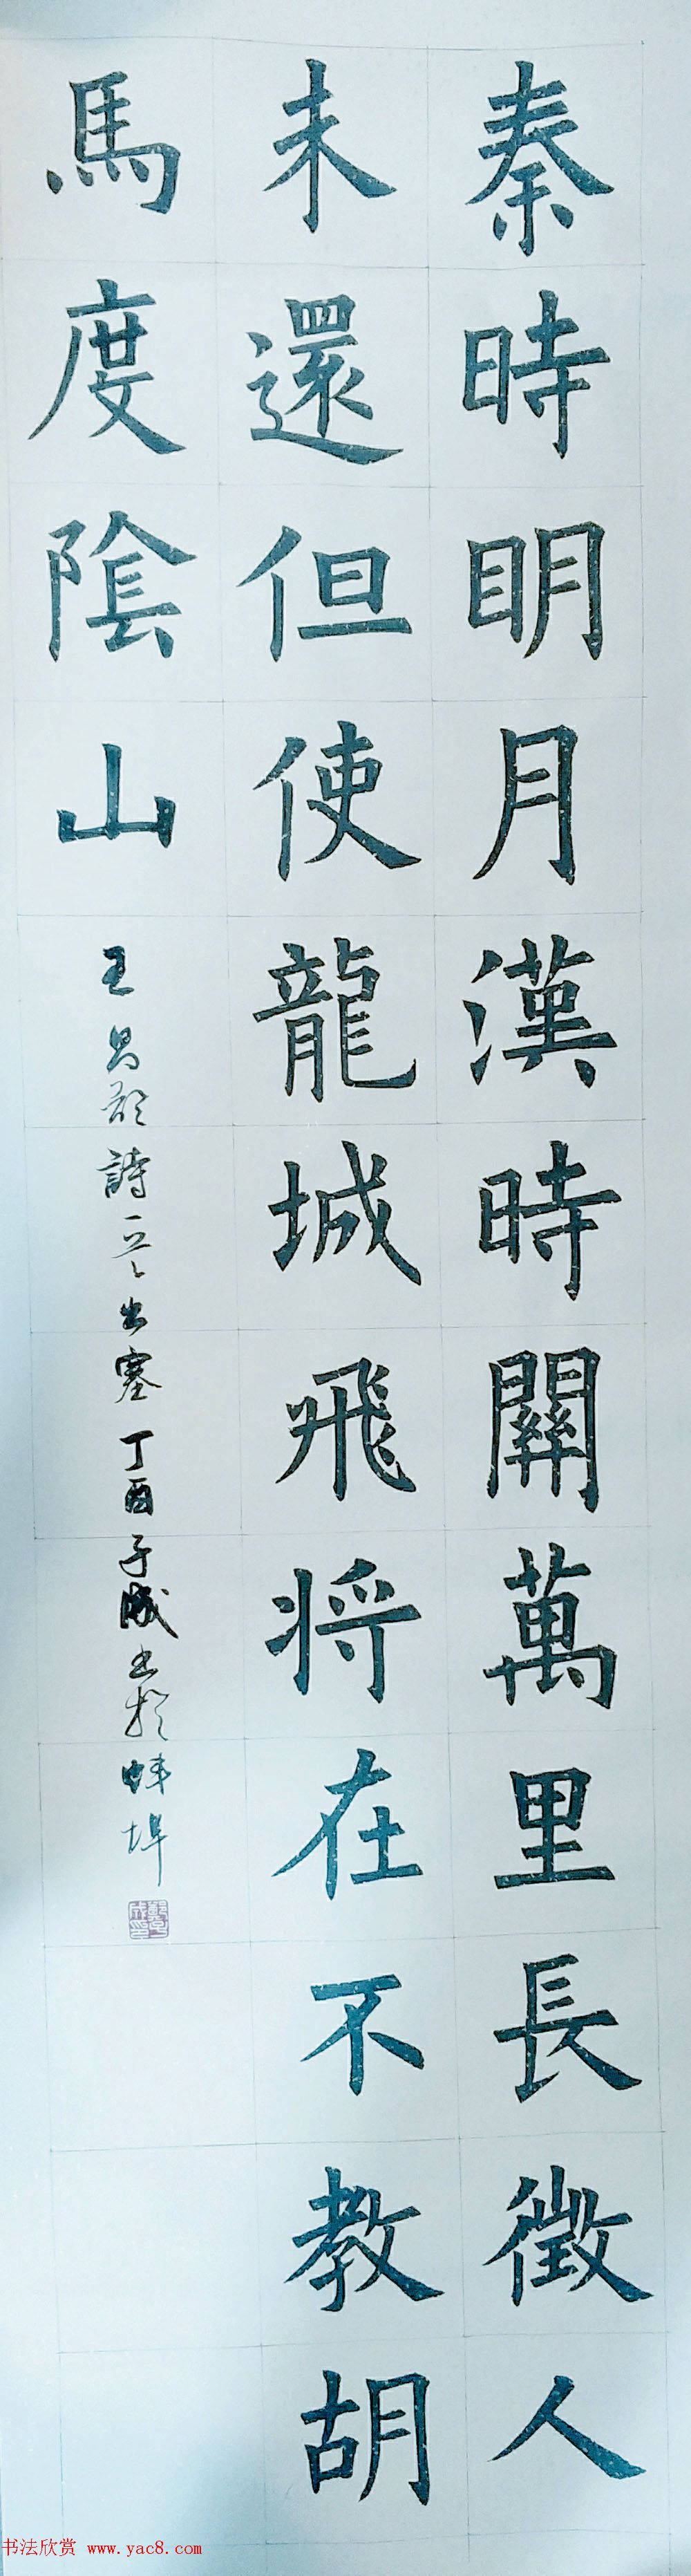 秦時明月漢時關萬里長徵人
未還但使龍城飛将在不教胡
馬度陰山
王昌龄詩一首出塞丁酉子成书於蚌埠
书法欣赏 www.yac8.com